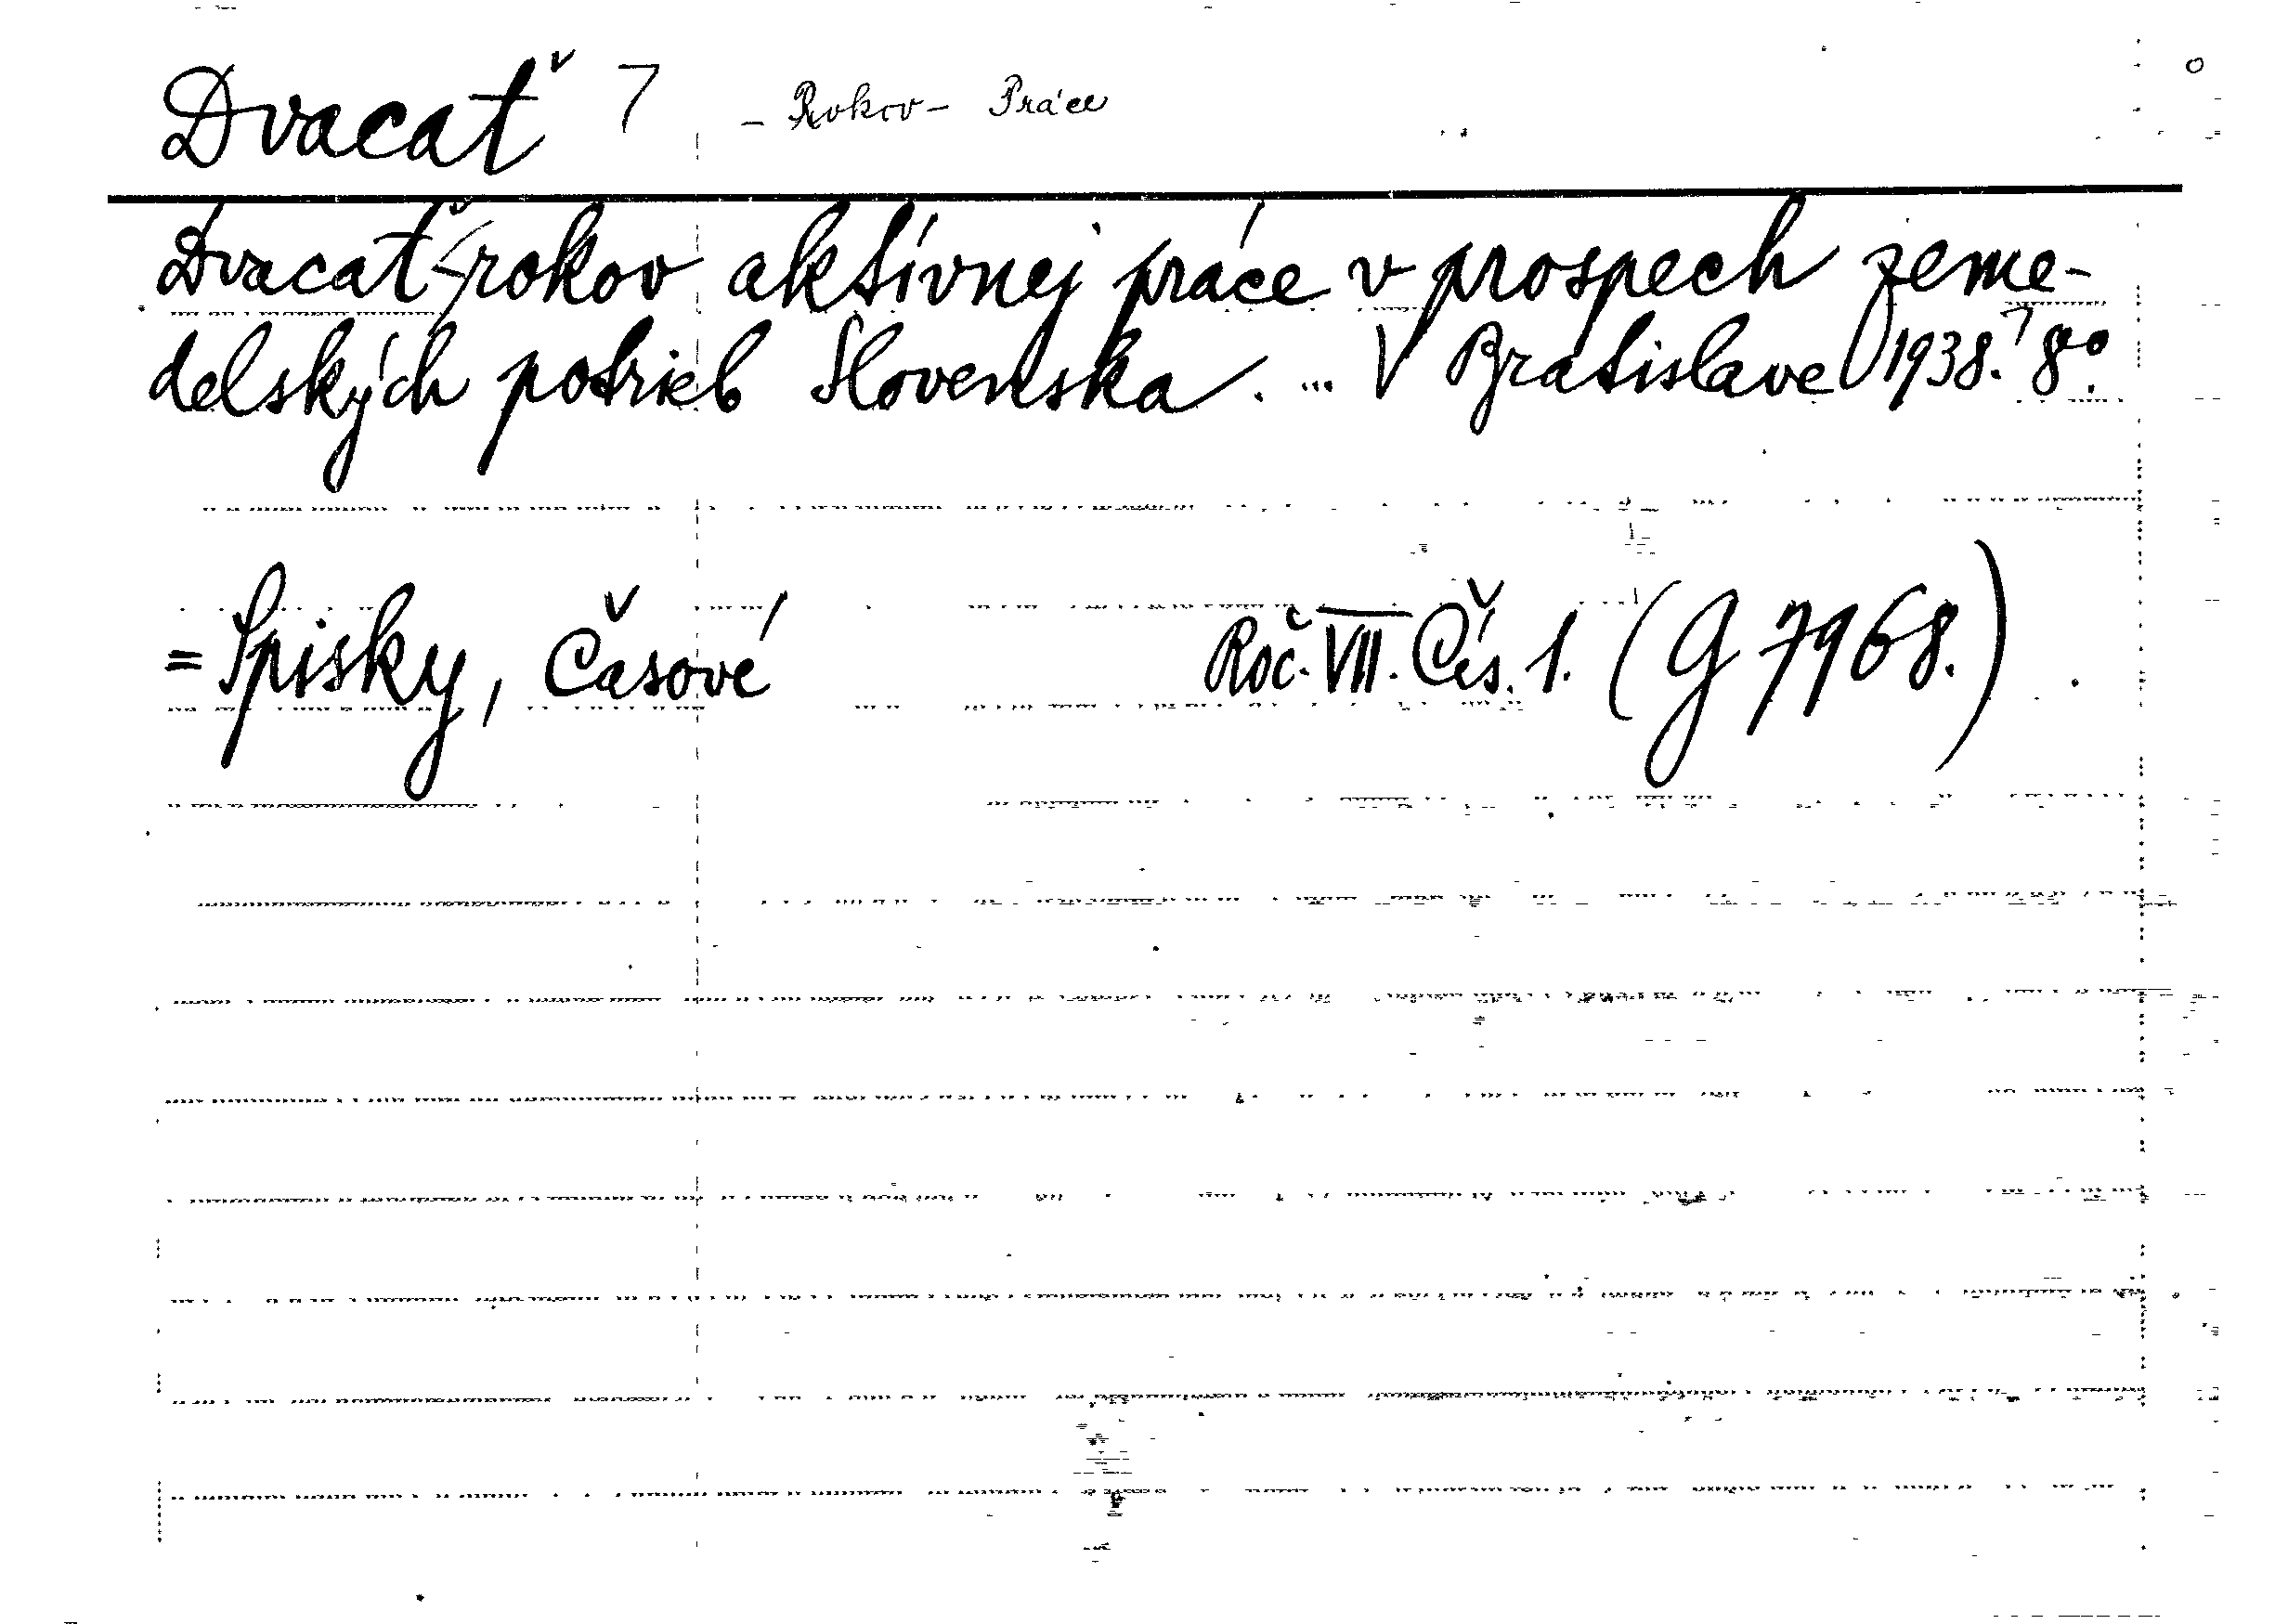 Dvacať 7 – Rokov – Práce
Dvacať rokov aktívnej práce v prospech zeme-
delských potrieb Slovenska. ... V Bratislave 1938. 8°.
= Spisky, Časové Roč. VII. Čís. 1. (G 7968.)